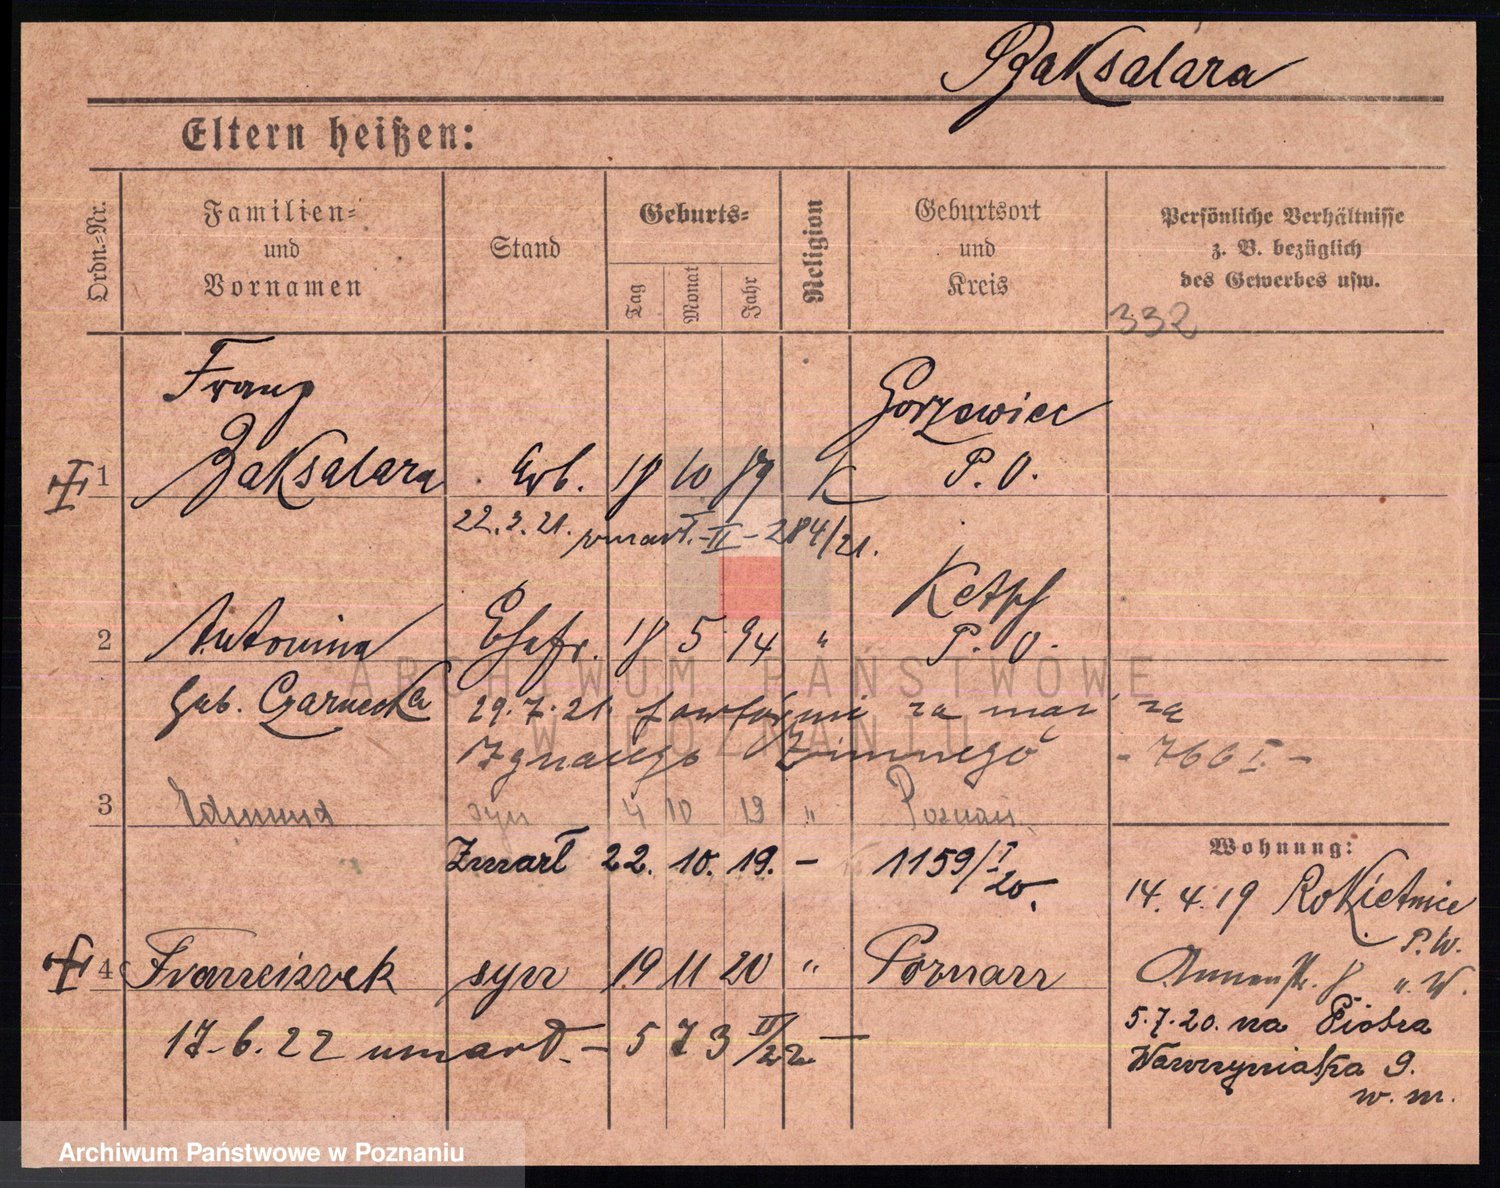 Baksalara
Eltern heißen:
Ordn.=Nr.
Familien=
und
Vornamen
Stand
Geburts=
Tag
Monat
Jahr
Religion
Geburtsort
und
Kreis
Persönliche Verhältnisse
z. B. bezüglich
des Gewerbes usw.
332
Franz
Gorzewice
1 Baksalara Arb. 18 10 89 K P. O.
22.3.21. zmarł. - II - 284/21.
2 Antonina Ehefr. 18 5 94 " P. O.
Geb. Czarnecka 29.7.21. za mąż za
Ignacego Zimnego - 766 I. -
3 Edmund syn 4 10 19 " Poznań.
Zmarł 22. 10. 19. - 1159/I 20.
4 Franciszek syn 19 11 20 " Poznań
17.6.22 umarł. - 573 II/22. -
Wohnung:
14. 4. 19 Rokietnice
P. W.
Annenstr. 8 v. W.
5.7.20. na Piotra
Wawrzyniaka 9.
w. m.
ARCHIWUM PAŃSTWOWE
W POZNANIU
Archiwum Państwowe w Poznaniu